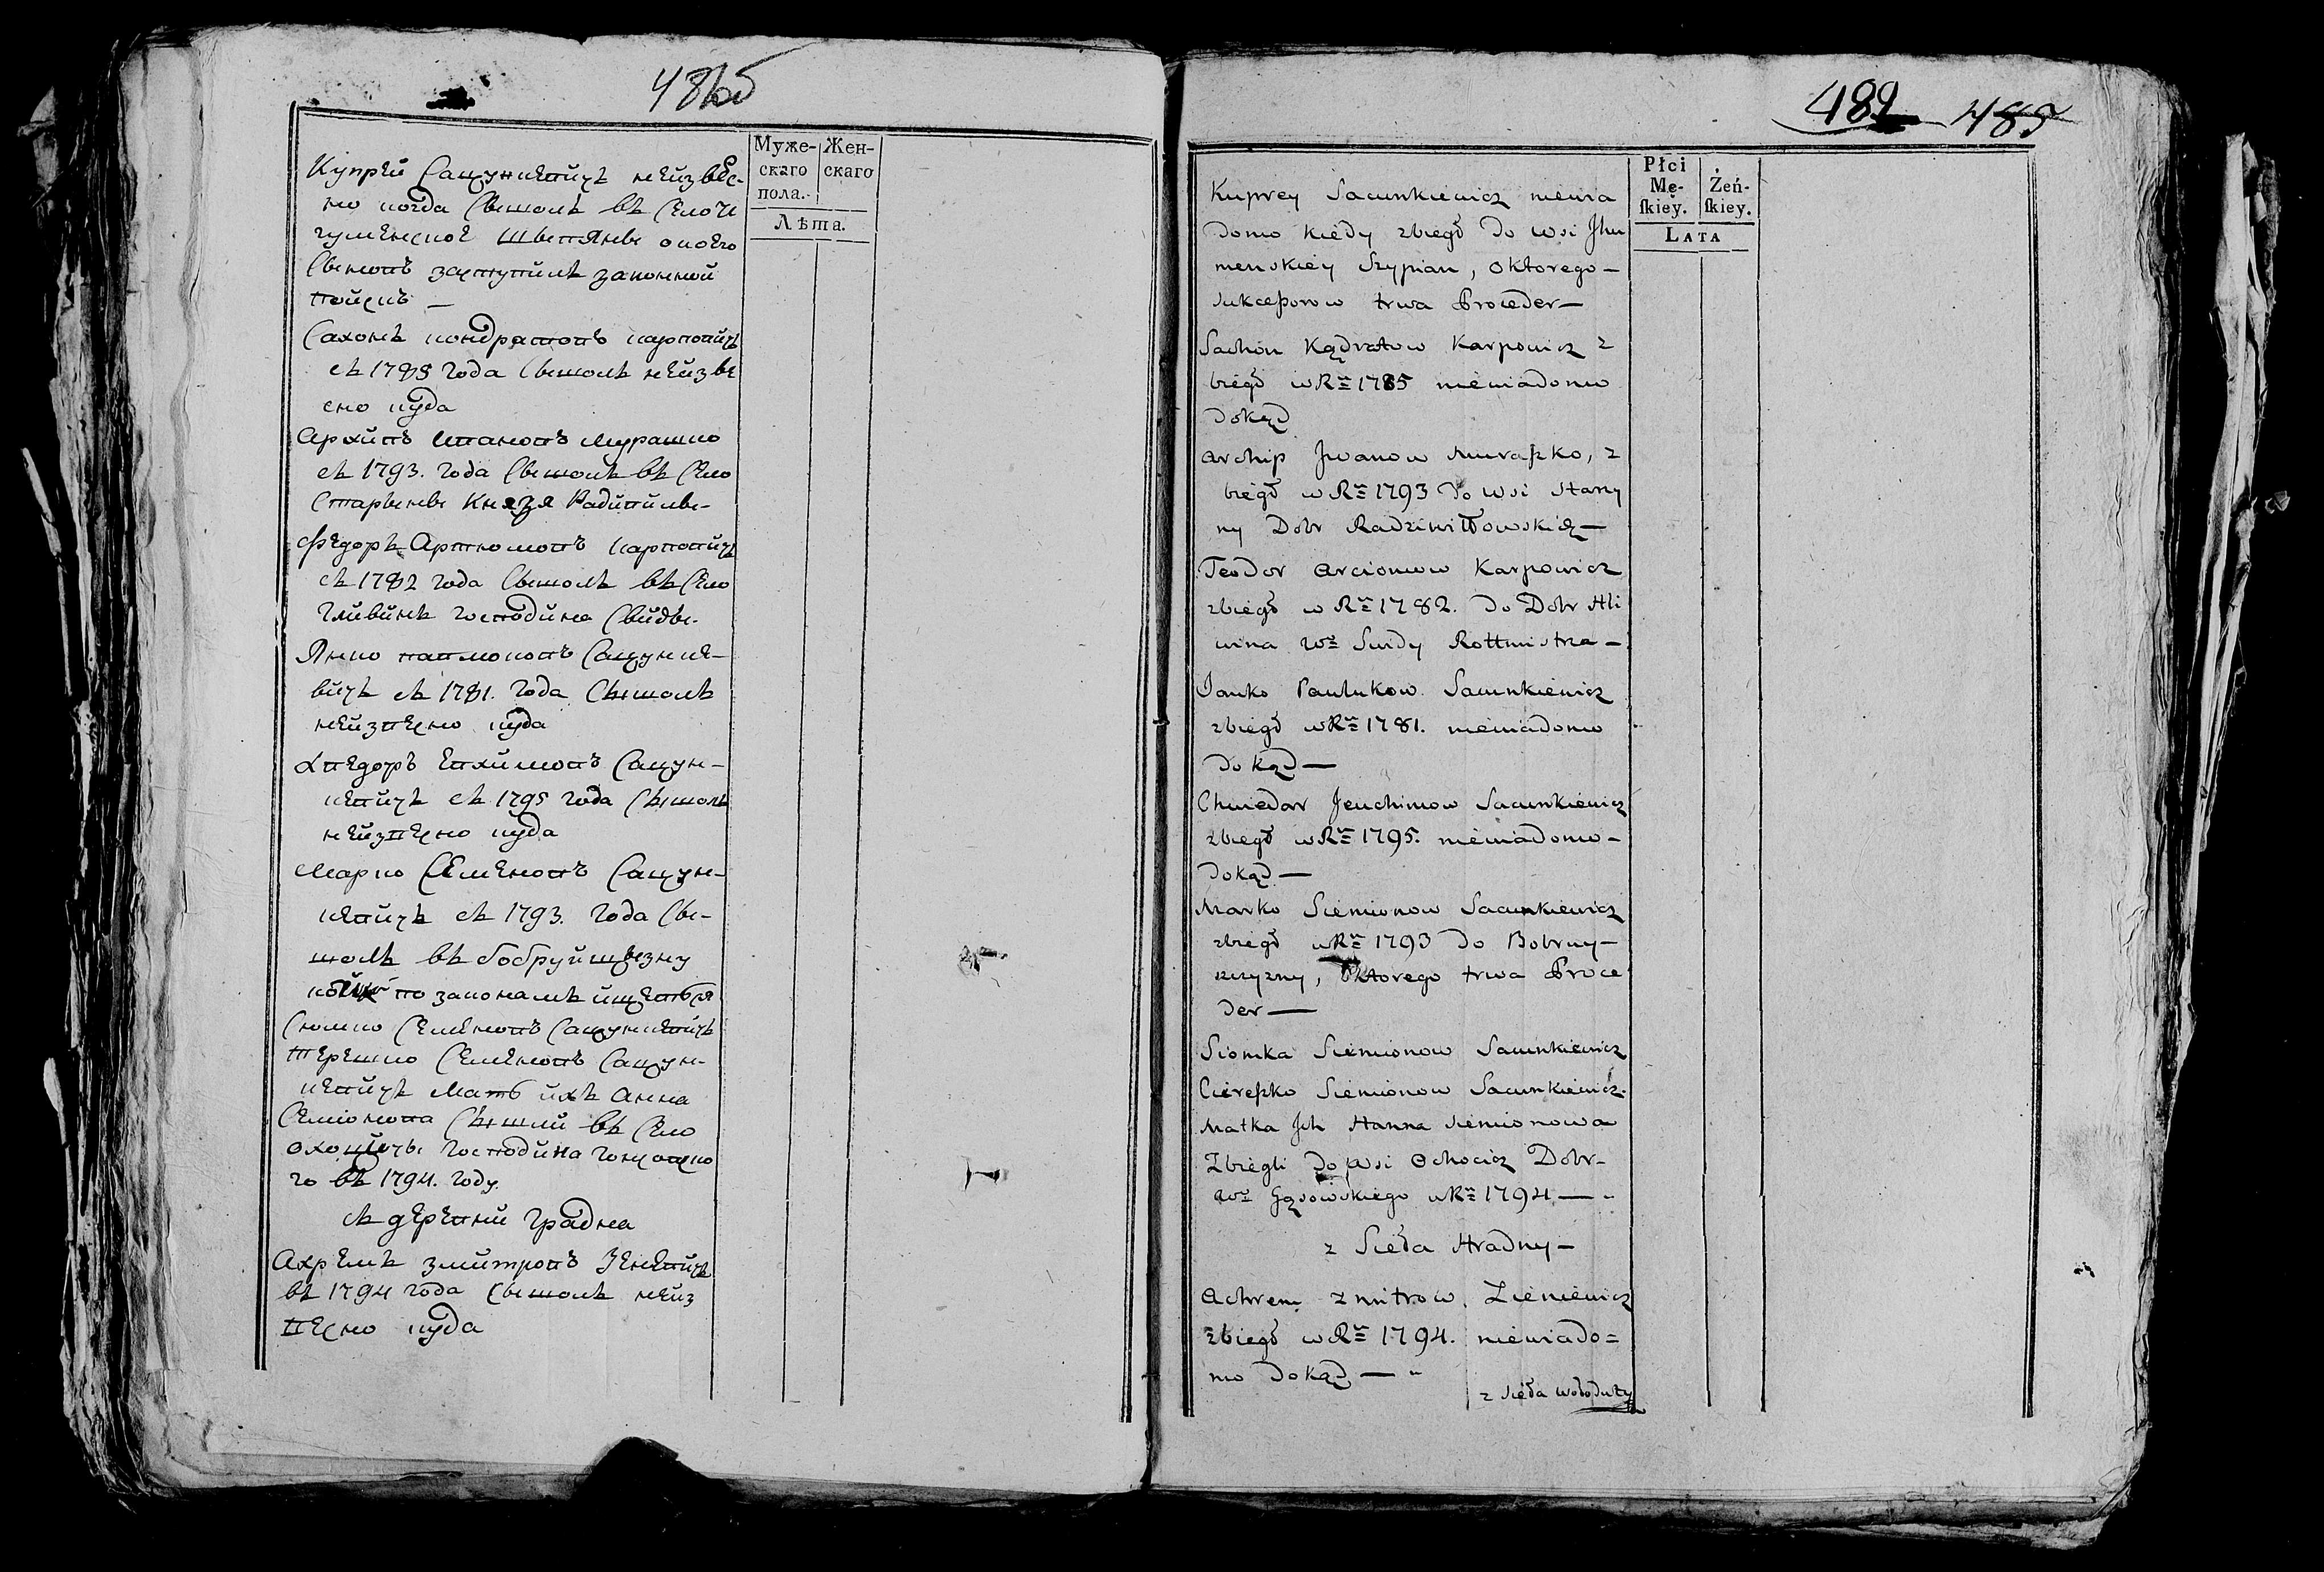 481об
Муже-
скаго
пола.
Жен-
скаго
Лѣта.
Купрей Сацункевичъ неизвес-
но когда Свешолъ въ Село И
гуменское
Свековъ заступилъ законной
поискъ —
Сахонъ Кондратовъ Карповичъ
съ 1785 года Свешолъ неизве
сно куда
Архипъ Ивановъ Мурашко
съ 1793. года Свешолъ въ Село
Старыневе Князя Радивиле-
Федоръ Артюмовъ Карповичъ
съ 1782 года Свешолъ въ Село
Гливинъ Господина Свиды-
Янко Павлюковъ Сацунке-
вичъ съ 1781. года Съшолъ
неизвесно куда
Хведоръ Евхимовъ Сацун-
кевичъ съ 1795 года Съшолъ
неизвесно куда
Марко Семеновъ Сацун-
кевичъ съ 1793. года Све-
шолъ въ бобруйщизну
по законамъ ищется
Сюмко Семеновъ Сацункевичъ
Терешко Семеновъ Сацун-
кевичъ Мать ихъ Анна
Семіонова Съшли въ Село
Охотичи Господина Гонсовско
го въ 1794. году.
съ деревни Градна
Ахремъ Змитровъ Зеневичъ
въ 1794 года Свешолъ неиз
весно куда
482 485
Płci
Mę-
ſkiey.
Żeń-
ſkiey.
LATA
Kuprey Sacunkiewicz niewia
domo kiedy zbiegł do wsi Jhu
menskiey Szypian, o ktorego —
sukceßorow trwa Proceder —
Sachon Kądratow Karpowicz z
biegł w Rᵘ 1785 niewiadomo
dokąd
Archip Jwanow Muraßko, z
biegł w Rᵘ 1793 do wsi Stary
ny Dobr Radziwiłłowskich —
Teodor Arcionow Karpowicz
zbiegł w Rᵘ 1782. do Dobr Hli
wina Wº Swidy Rottmistrza —
Janko Pawlukow Sacunkiewicz
zbiegł w Rᵘ 1781. niewiadomo
dokąd —
Chwiedor Jeuchimow Sacunkiewicz
zbiegł w Rᵘ 1795. niewiadomo —
dokąd —
Marko Siemionow Sacunkiewicz
zbiegł w Rᵘ 1793 do Bobruy —
szczyzny, o ktorego trwa Proce
der —
Siomka Siemionow Sacunkiewicz
Ciereßko Siemionow Sacunkiewicz.
Matka Jch Hanna Siemionowa
Zbiegli do wsi Ochocicz Dobr —
Wº Gąsowskiego w Rᵘ 1794 —
z Sieła Hradny —
Achrem Zmitrow Zieniewicz
zbiegł w Rᵘ 1794. niewiado=
mo dokąd —
z sieła Wołoduty